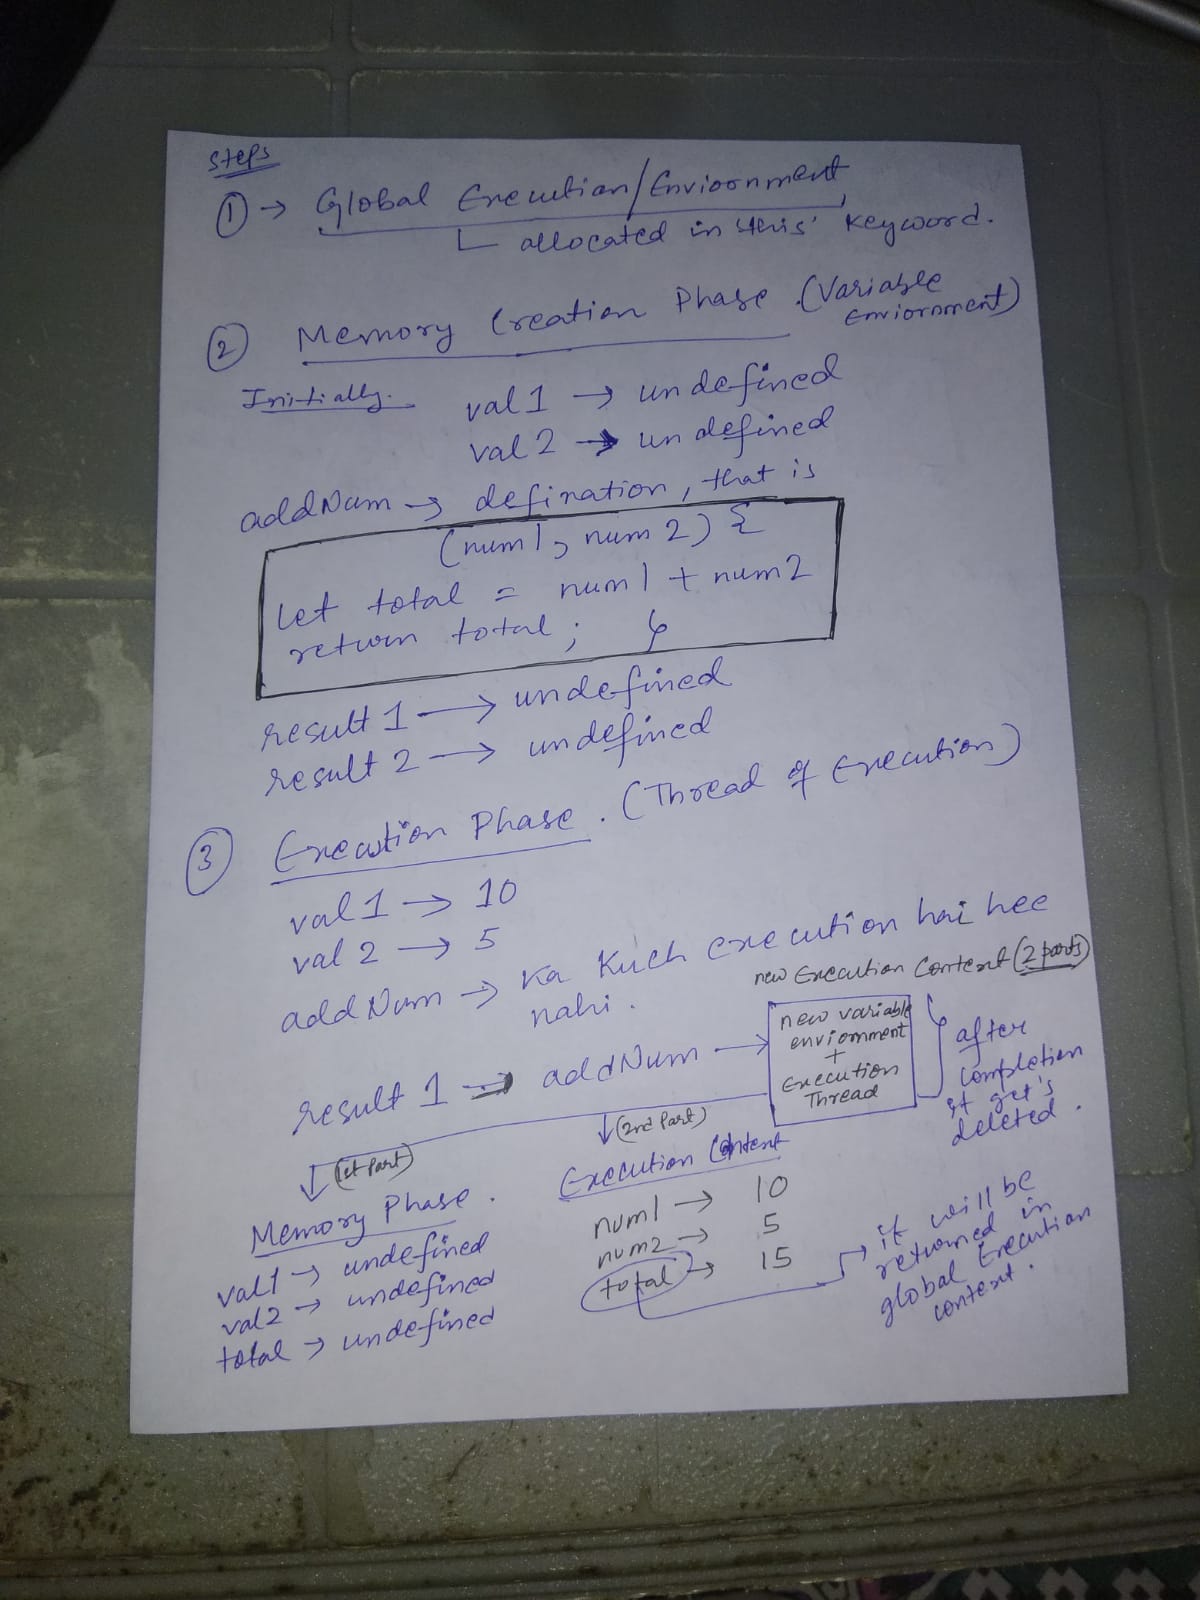 Steps
① → Global Execution/Enviornment
allocated in 'this' keyword.
② Memory Creation Phase. (Variable
Enviornment)
Initially.
val 1 → undefined
val 2 → undefined
addNum → defination, that is
(num1, num2) {
let total = num1 + num2
return total; }
result 1 → undefined
result 2 → undefined
③ Execution Phase. (Thread of Execution)
val 1 → 10
val 2 → 5
addNum → Ka Kuch execution hai hee
nahi.
new Execution Context (2 parts)
result 1 → addNum →
new variable
enviornment
+
Execution
Thread
after
completion
it get's
deleted.
↓ (1st Part)
Memory Phase.
val1 → undefined
val2 → undefined
total → undefined
↓ (2nd Part)
Execution Context
num1 → 10
num2 → 5
total → 15
→ it will be
returned in
global Execution
context.